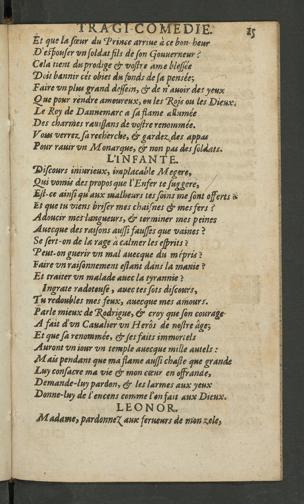 TRAGI-COMEDIE. 15
Et que la sœur du Prince arriue à ce bon-heur
D'espouser vn soldat fils de son Gouuerneur?
Cela tient du prodige & vostre ame blessée
Doit bannir cét obiet du fonds de sa pensée;
Faire vn plus grand dessein, & de n'auoir des yeux
Que pour rendre amoureux, ou les Rois ou les Dieux.
Le Roy de Dannemarc a sa flame allumée
Des charmes rauissans de vostre renommée.
Vous verrez sa recherche, & gardez des appas
Pour rauir vn Monarque, & non pas des soldats.
L'INFANTE.
Discours iniurieux, implacable Megere,
Qui vomis des propos que l'Enfer te suggere,
Est-ce ainsi qu'aux malheurs tes soins me sont offerts
Et que tu viens briser mes chaisnes & mes fers?
Adoucir mes langueurs, & terminer mes peines
Auecque des raisons aussi fausses que vaines?
Se sert-on de la rage à calmer les esprits?
Peut-on guerir vn mal auecque du mépris?
Faire vn raisonnement estant dans la manie?
Et traiter vn malade auec la tyrannie?
Ingrate radoteuse, auec tes sots discours,
Tu redoubles mes feux, auecque mes amours.
Parle mieux de Rodrigue, & croy que son courage
A fait d'vn Caualier vn Herôs de nostre âge;
Et que sa renommée, & ses faits immortels
Auront vn iour vn temple auecque mille autels:
Mais pendant que ma flame aussi chaste que grande
Luy consacre ma vie & mon cœur en offrande,
Demande-luy pardon, & les larmes aux yeux
Donne-luy de l'encens comme l'on fait aux Dieux.
LEONOR.
Madame, pardonnez aux ferueurs de mon zele,